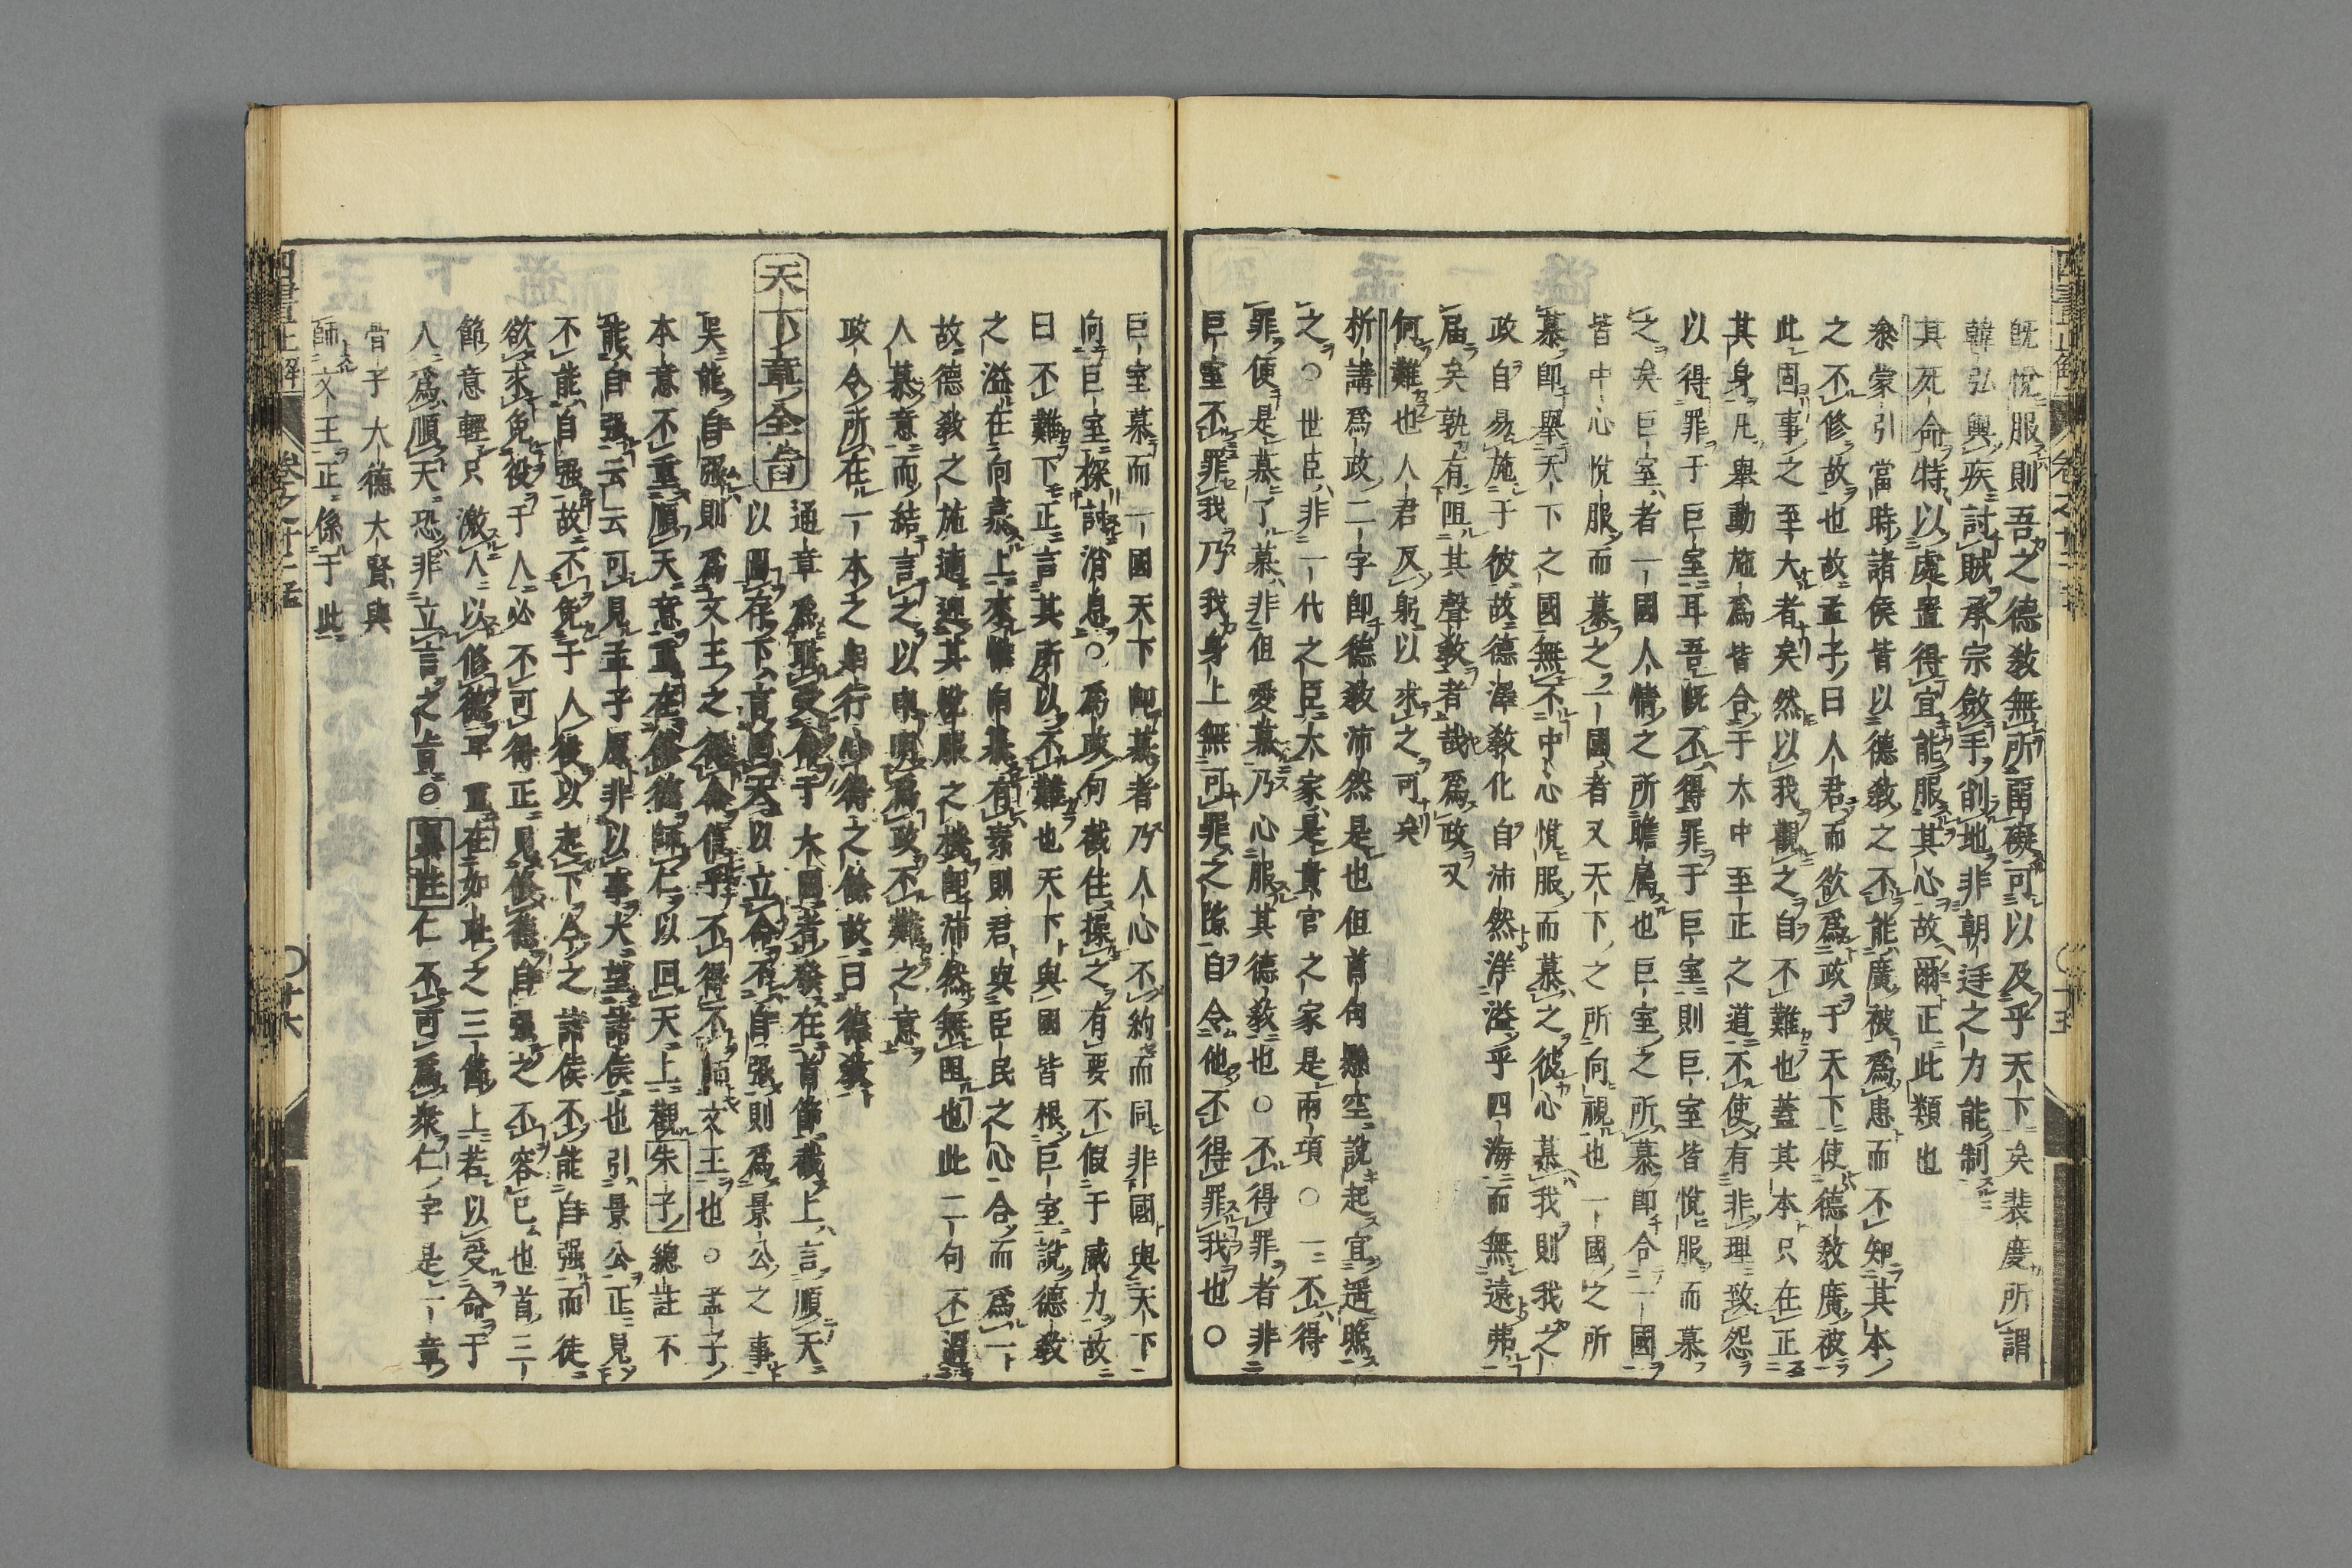 既悅服則吾之德敎無所留礙可以及乎天下矣裴度所謂
韓弘輿疾討賊承宗斂手削地非朝廷之力能制
其死命特以處置得宜能服其心故爾正此類也
叅蒙引當時諸侯皆以德敎之不能廣被爲患而不知其本
之不修故也故孟子曰人君而欲爲政于天下使德敎廣被
此固事之至大者矣然以我觀之自不難也蓋其本只在正
其身凡舉動施爲皆合于大中至正之道不使有非理致怨
以得罪于巨室耳吾既不得罪于巨室則巨室皆悅服而慕
之矣巨室者一國人情之所瞻屬也巨室之所慕即合一國
皆中心悅服而慕之一國者又天下之所向視也一國之所
慕即舉天下之國無不中心悅服而慕之彼心慕我則我之
政自易施于彼故德澤敎化自沛然洋溢乎四海而無遠弗
届矣孰有阻其聲敎者哉爲政又
何難也人君反躬以求之可矣
析講爲政二字即德敎沛然是也但首句懸空說起宜遥照
之○世臣非一代之臣大家是貴官之家是兩項○一不得
罪便是慕了慕非但愛慕乃心服其德敎也○不得罪者非
巨室不罪我乃我身上無可罪之隙自令他不得罪我也○
巨室慕而一國天下即慕者乃人心不約而同非國與天下
向巨室探討消息○爲政句截住操之有要不假于威力故
曰不難下正言其所以不難也天下與國皆根巨室說德敎
之溢在向慕上來惟向慕有素則君與臣民之心合而爲一
故德敎之施適迎其悅服之機即沛然無阻也此二句不過
人慕意而結言之以申明爲政不難之意
政令所在一本之躬行心得之餘故曰德敎
天下章全旨
通章爲恥受命于大國者發在首節截上言順天
以圖存下言回天以立命不自張則爲景公之事
吴能自强則爲文王之得令信乎不得不師文王也○孟子
本意不重順天意重在修德師仁以回天上觀朱子總註不
能自强云云可見孟子原非以事大望諸侯也引景公正見
不能自强故不免于人役以起下今之諸侯不能自强而徒
欲求免役于人必不可得正見修德自强之不容已也首三
節意輕只激人以修德耳重在如耻之三節上若以受命于
人爲順天恐非立言之旨○集註仁不可爲衆仁字是一章
骨子大德大賢與
師文王正係于此
四書正解
卷之廿二 孟